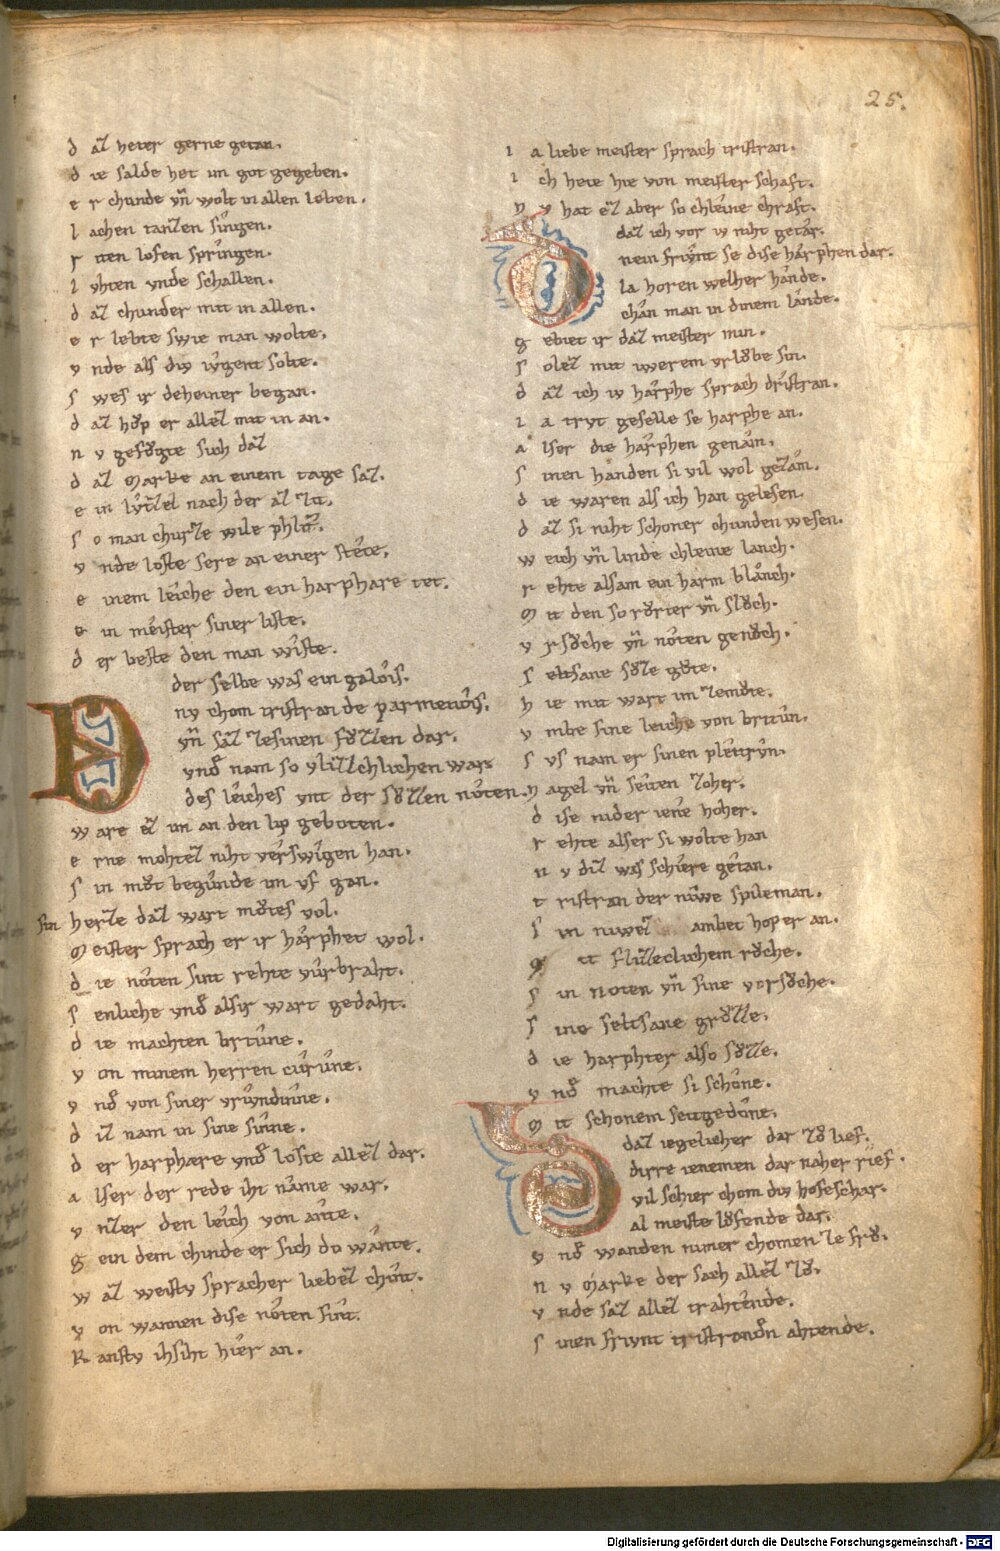 25.
d az heter gerne getan.
d ie salde het im got gegeben.
e r chunde vn̄ wolt in allen leben.
l achen tanzen singen.
r iten lofen springen.
z vhten vnde schallen.
d az chunder mit in allen.
e r lebte swie man wolte.
v nde als div ivgent solte.
s wes ir deheiner began.
d az hůp er allez mit in an.
n v gefůgte sich daz
d az Marke an einem tage saz.
e in lvtzel nach der az zit.
s o man churze wile phlit.
v nde loste sere an einer stete.
e inem leiche den ein harphare tet.
e in meister siner liste.
d er beste den man wiste.
D der selbe was ein galois.
nv chom tristran de parmenois.
vn̄ saz zesinen fůzzen dar.
vnd nam so vlizchlichen war
des leiches vnt der sůzzen noten.
w are ez im an den lip geboten.
e rne mohtez niht verswigen han.
s in můt begunde im vf gan.
sin herze daz wart můtes vol.
M eister sprach er ir harphet wol.
d ie noten sint rehte vurbraht.
s enliche vnd alsir wart gedaht.
d ie machten britune.
v on minem herren curune.
v nd von siner vriwndinne.
d iz nam in sine sinne.
d er harphere vnd loste allez dar.
a lser der rede iht name war.
v nzer den leich von ante.
g ein dem chinde er sich do wante.
w az weistv spracher liebez chint.
v on wannen dise noten sint.
K anstv ihsiht hier an.
i a liebe meister sprach tristran.
i ch hete hie von meisterschaft.
n v hat ez aber so chleine chraft.
daz ich vor iv niht getar.
D nein frivnt se dise harphen dar.
la horen welher hande.
chan man in dinem lande.
g ebiet ir daz meister min.
s olez mit iwerem vrlŏbe sin.
d az ich iv harphe sprach dristran.
i a trvt geselle se harphe an.
a lser die harphen genam.
s inen handen si vil wol gezam.
d ie waren als ich han gelesen.
d az si niht schoner chunden wesen.
w eich vn̄ linde chleine lanch.
r ehte alsam ein harm blanch.
M it den so růrter vn̄ slůch.
v rsůche vn̄ noten genůch.
s eltsane sůze gůte.
h ie mit wart im zemůte.
v mbe sine leiche von britun.
s vs nam er sinen plectrvn.
n agel vn̄ seiten zoher.
d ise nider iene hoher.
r ehte alser si wolte han
n v diz was schiere getan.
t ristran der niwe spileman.
s in niwez ambet hoper an.
M it flizeclichem rŏche.
s in noten vn̄ sine vorsůche.
s ine seltsane grůzze.
d ie harphter also sůzze.
v nd machte si schone.
M it schonem seitgedone.
S daz iegelicher dar zů lief.
dirre ienemen dar naher rief.
vil schier chom div hofeschar.
al meiste lŏfende dar.
v nd wanden nimer chomen ze frů.
n v Marke der sach allez zů.
v nde saz allez trahtende.
s inen frivnt tristranden ahtende.
Digitalisierung gefördert durch die Deutsche Forschungsgemeinschaft - DFG